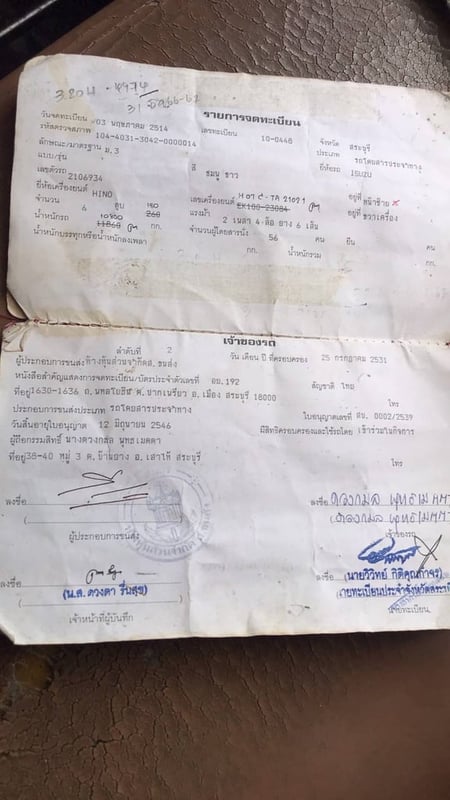 รายการจดทะเบียน
วันจดทะเบียน 03 พฤษภาคม 2514 เลขทะเบียน 10-0448 จังหวัด สระบุรี
รหัสตรวจสภาพ 104-4031-3042-0000014 ประเภท รถโดยสารประจำทาง
ลักษณะ/มาตรฐาน ม.3 ยี่ห้อรถ ISUZU
แบบ/รุ่น สี ชมพู ขาว
เลขตัวรถ 2106934 อยู่ที่ หน้าซ้าย
ยี่ห้อเครื่องยนต์ HINO เลขเครื่องยนต์ EK100-23084 อยู่ที่ ขวาเครื่อง
จำนวน 6 สูบ 260 แรงม้า 2 เพลา 4 ล้อ ยาง 6 เส้น
น้ำหนักรถ 11860 กก. จำนวนผู้โดยสารนั่ง 56 คน ยืน คน
น้ำหนักบรรทุกหรือน้ำหนักลงเพลา กก. น้ำหนักรวม กก.
เจ้าของรถ
ลำดับที่ 2 วัน เดือน ปี ที่ครอบครอง 25 กรกฎาคม 2531
ผู้ประกอบการขนส่ง ขนส่ง
หนังสือสำคัญแสดงการจดทะเบียน/บัตรประจำตัวเลขที่ 192 สัญชาติ ไทย
ที่อยู่ 1630-1636 ถ.พหลโยธิน ต.ปากเพรียว อ.เมือง สระบุรี 18000 โทร
ประกอบการขนส่งประเภท รถโดยสารประจำทาง ใบอนุญาตเลขที่ สบ. 0002/2539
วันสิ้นอายุใบอนุญาต 12 มิถุนายน 2546 มีสิทธิครอบครองและใช้รถโดย เข้าร่วมกิจการ
ผู้ถือกรรมสิทธิ์ นางดวงกมล พุทธเมตตา
ที่อยู่ 38-40 หมู่ 3 ต.บ้านยาง อ.เสาไห้ สระบุรี โทร
ลงชื่อ ลงชื่อ ดวงกมล
ผู้ประกอบการขนส่ง เจ้าของรถ
ลงชื่อ ลงชื่อ
(น.ส. ดวงตา รื่นสุข) (นายวิวิทย์ กิติคุณกำจร)
เจ้าหน้าที่ผู้บันทึก นายทะเบียนประจำจังหวัดสระบุรี
นายทะเบียน